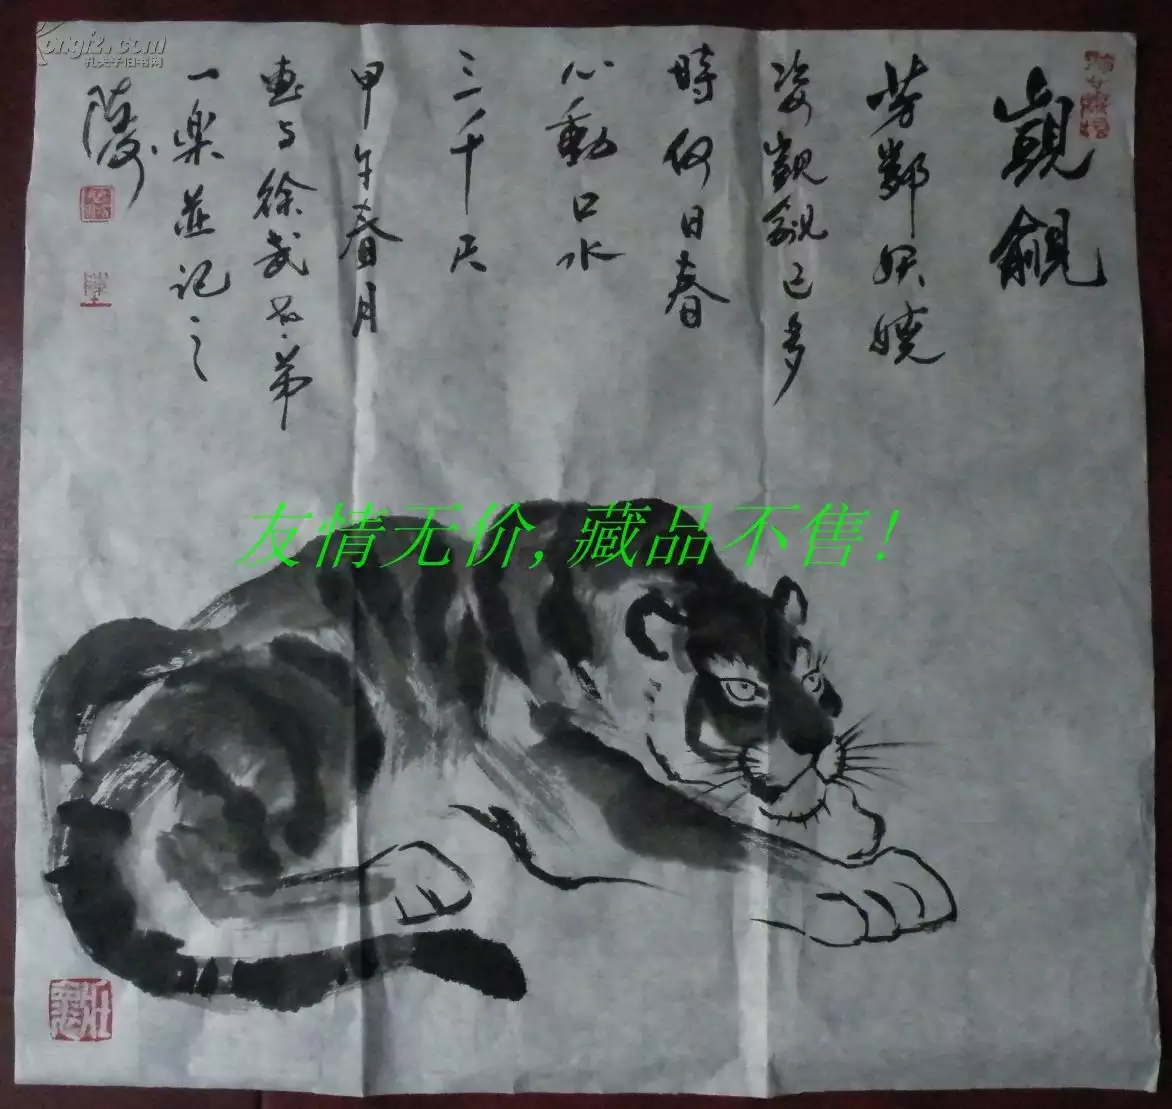 覬覦
芳鄰妖嬈
姿覬覦已多
時何日春
心動口水
三千尺
甲午春月
畫与徐武老弟
一樂並記之
友情无价,藏品不售!
孔夫子旧书网